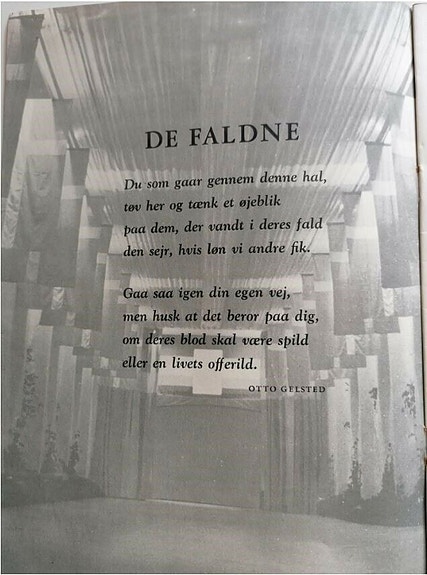 DE FALDNE
Du som gaar gennem denne hal,
tøv her og tænk et øjeblik
paa dem, der vandt i deres fald
den sejr, hvis løn vi andre fik.
Gaa saa igen din egen vej,
men husk at det beror paa dig,
om deres blod skal være spild
eller en livets offerild.
OTTO GELSTED